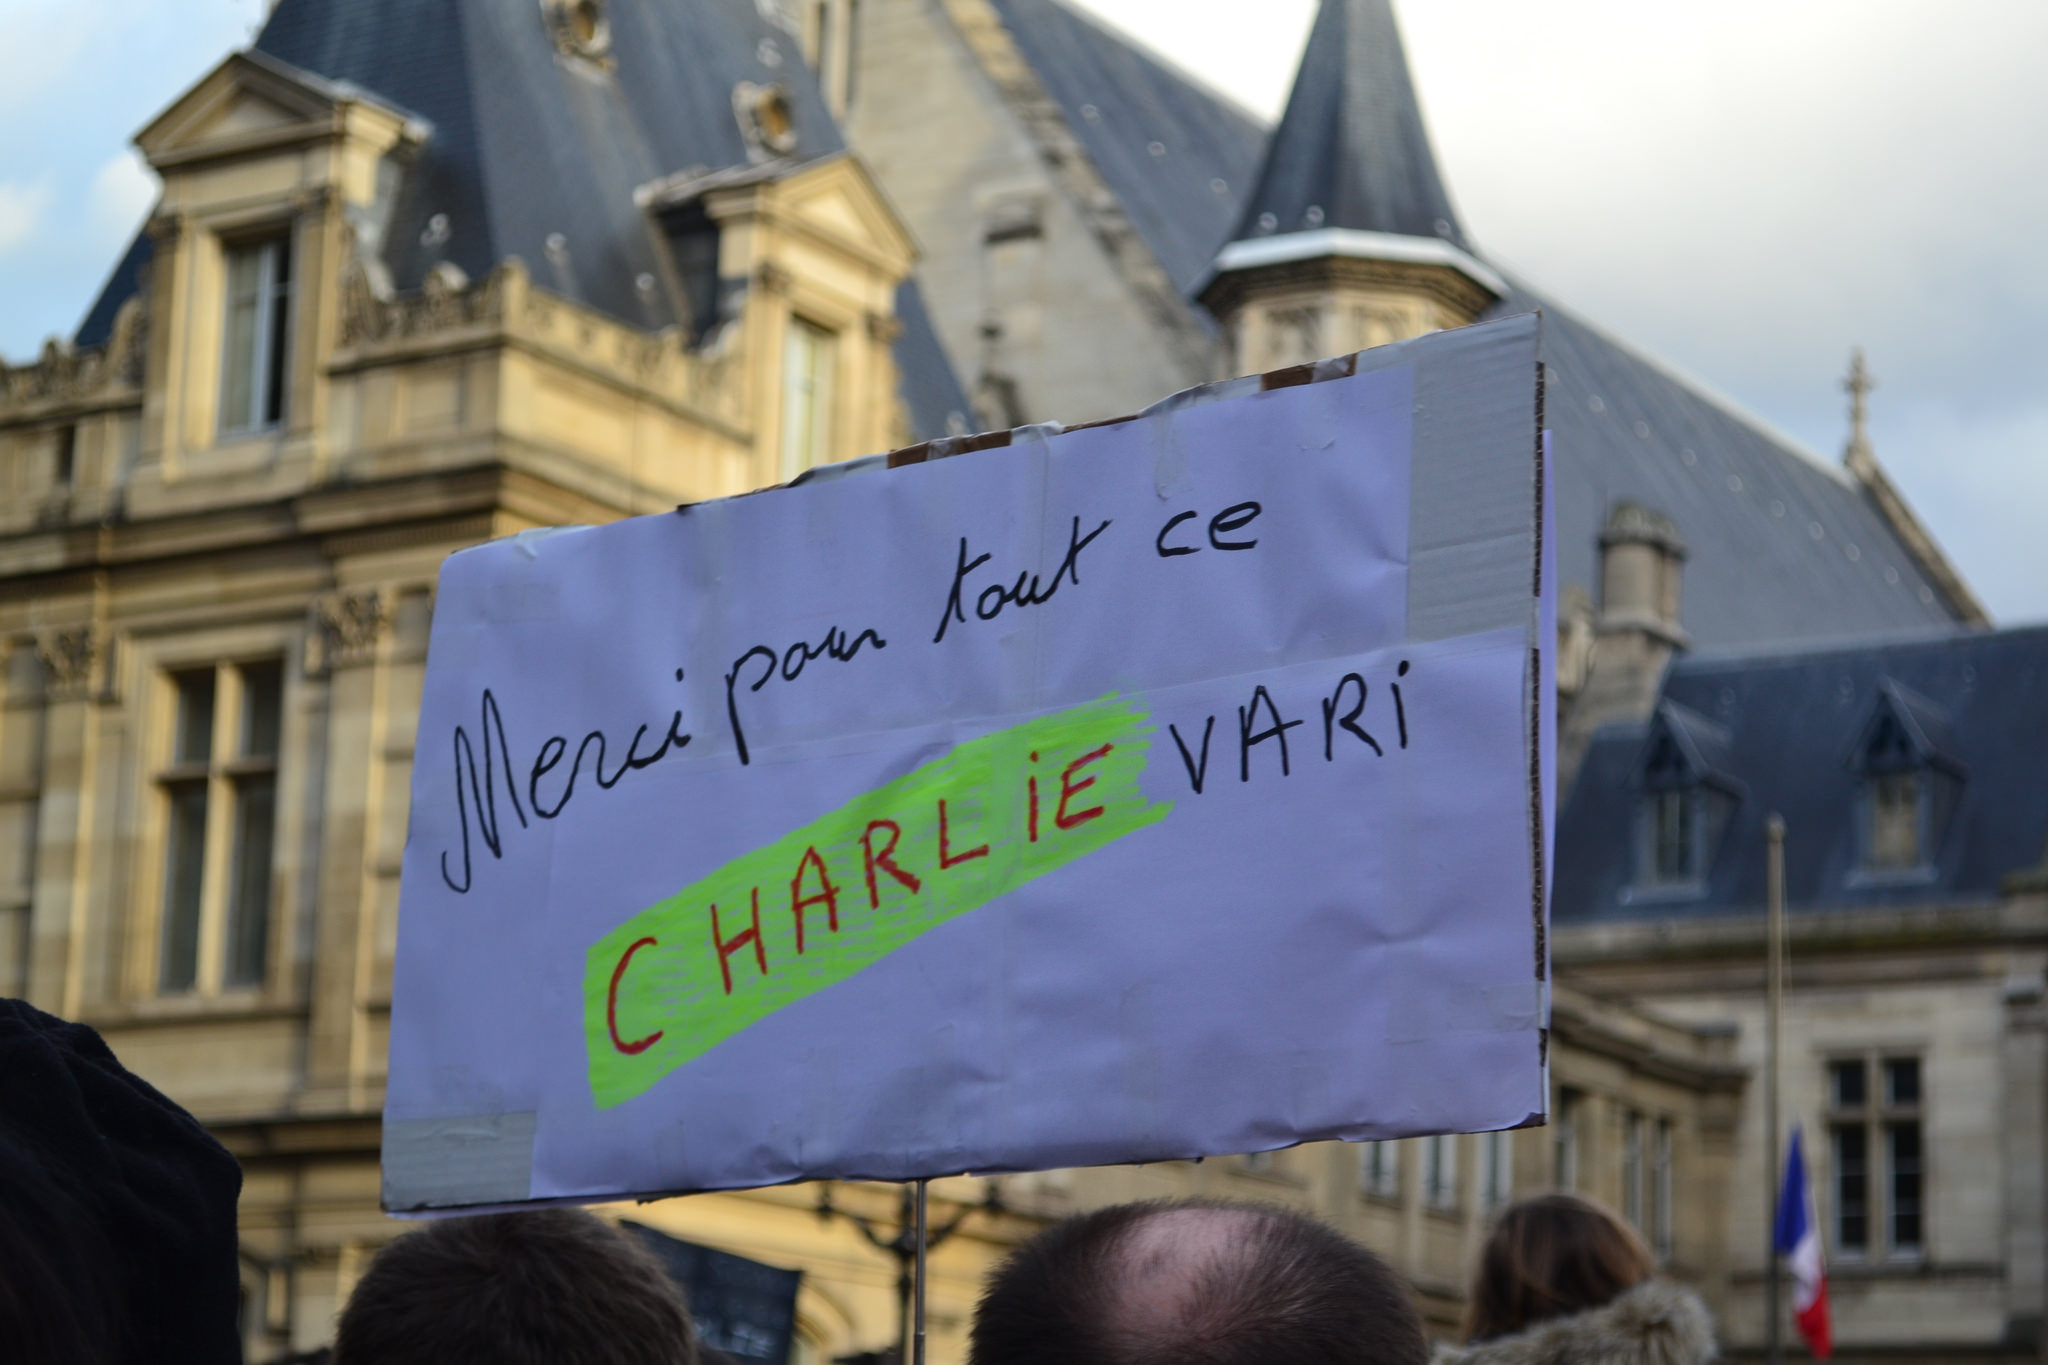 Merci pour tout ce
CHARLiE VARi